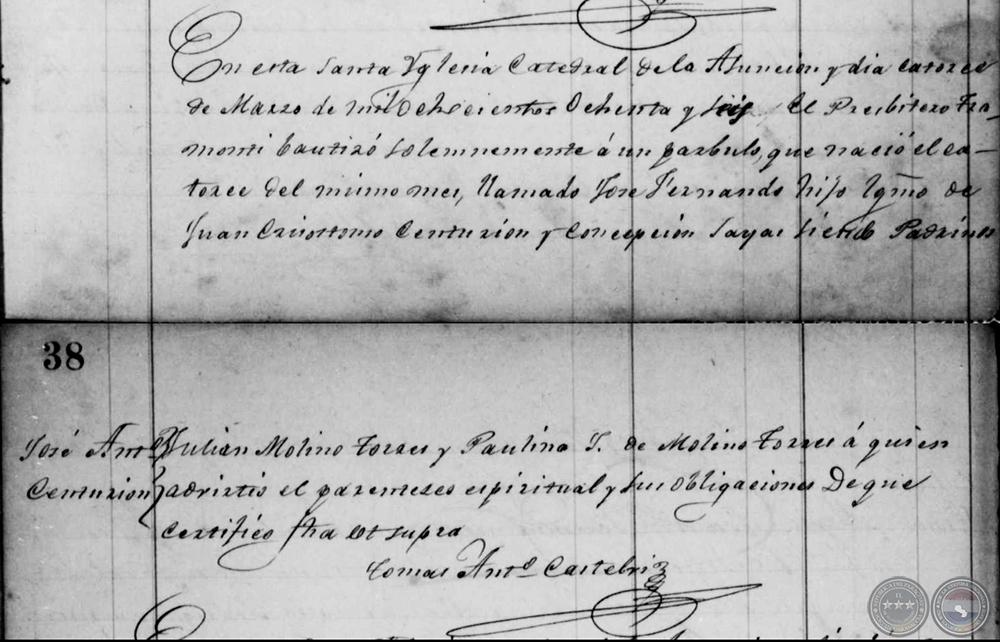 En esta Santa Yglesia Catedral de la Asuncion y dia catorce
de Marzo de mil Ochocientos Ochenta y Seis, el Presbitero Tra-
monti bautizó Solemnemente á un parbulo, que nació el ca-
torce del mismo mes, llamado Jose Fernando hijo lgmo de
Juan Crisostomo Centurion y Concepción Sayas siendo Padrinos
38
José Anto
Centurion
Julian Molino Torres y Paulina T. de Molino Torres á quien
advirtio el parentesco espiritual y sus obligaciones De que
certifico fha ut supra
Tomas Anto Castelvi